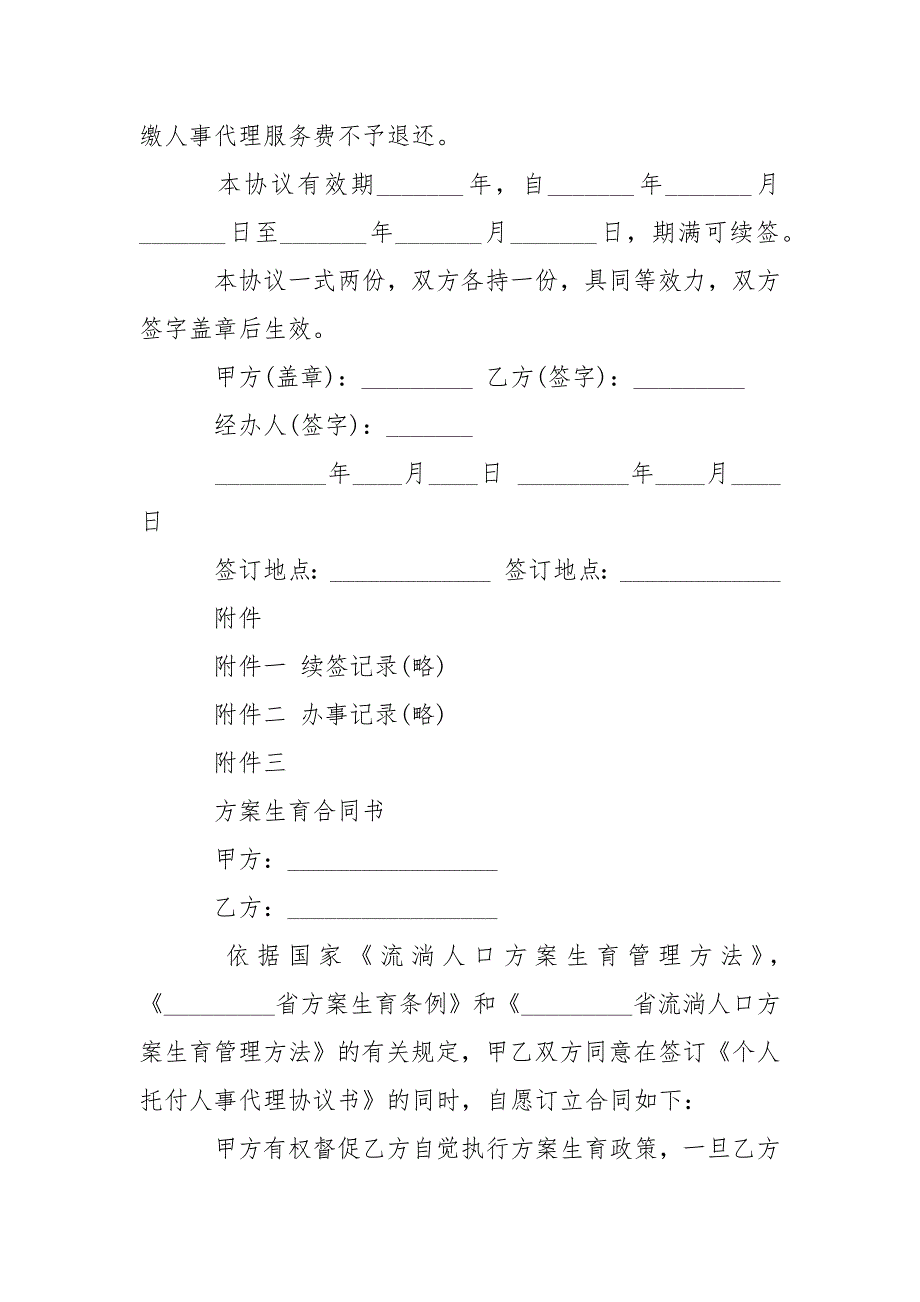 缴人事代理服务费不予退还。
本协议有效期_______年，自_______年_______月
_______日至_______年_______月_______日，期满可续签。
本协议一式两份，双方各持一份，具同等效力，双方
签字盖章后生效。
甲方(盖章)：_________ 乙方(签字)：_________
经办人(签字)：_______
_________年____月____日 _________年____月____
日
签订地点：_____________ 签订地点：_____________
附件
附件一 续签记录(略)
附件二 办事记录(略)
附件三
方案生育合同书
甲方：_________________
乙方：_________________
依据国家《流淌人口方案生育管理方法》，
《_________省方案生育条例》和《_________省流淌人口方
案生育管理方法》的有关规定，甲乙双方同意在签订《个人
托付人事代理协议书》的同时，自愿订立合同如下：
甲方有权督促乙方自觉执行方案生育政策，一旦乙方